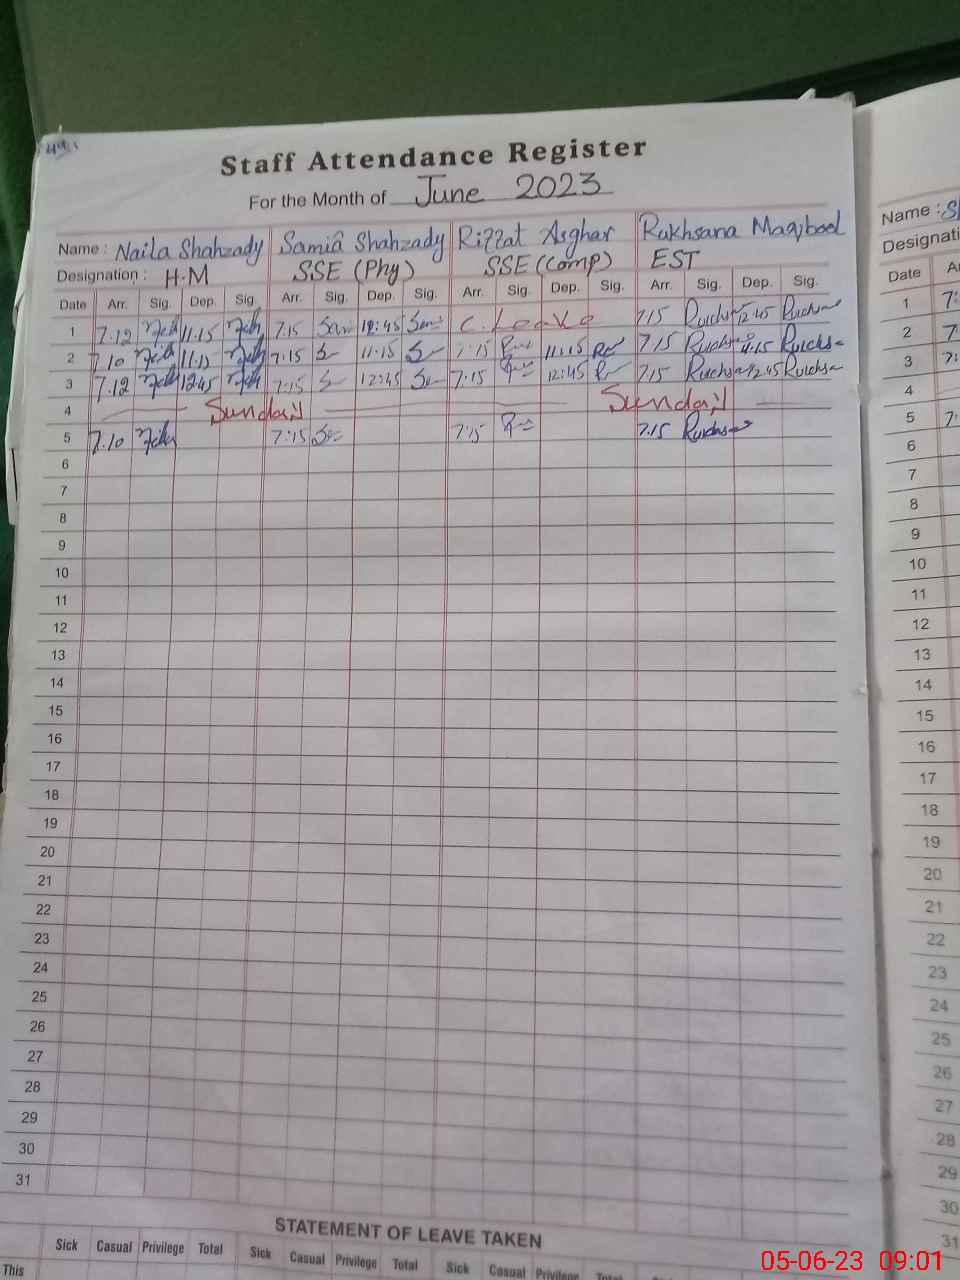 Staff Attendance Register
For the Month of June 2023
Name : Naila Shahzady Samia Shahzady Rizzat Asghar Rukhsana Maqbool
Designation : H.M SSE (Phy) SSE (Comp) EST
Date Arr. Sig. Dep. Sig. Arr. Sig. Dep. Sig. Arr. Sig. Dep. Sig. Arr. Sig. Dep. Sig.
1 7.12 11.15 7.15 12:45 C. Leave 7.15 12.45
2 7.10 11.15 7:15 11.15 7.15 11.15 7.15
3 7.12 12.45 7:15 12:45 7.15 12:45 7.15 12.45
4 Sunday Sunday
5 7.10 7:15 7:15 7.15
6
7
8
9
10
11
12
13
14
15
16
17
18
19
20
21
22
23
24
25
26
27
28
29
30
31
STATEMENT OF LEAVE TAKEN
Sick Casual Privilege Total Sick Casual Privilege Total Sick Casual Privilege Total
This
Name :
Date
1
2
3
4
5
6
7
8
9
10
11
12
13
14
15
16
17
18
19
20
21
22
23
24
25
26
27
28
29
30
31
05-06-23 09:01